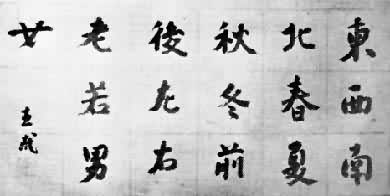 東西南
北春夏
秋冬前
後左右
老若男
女